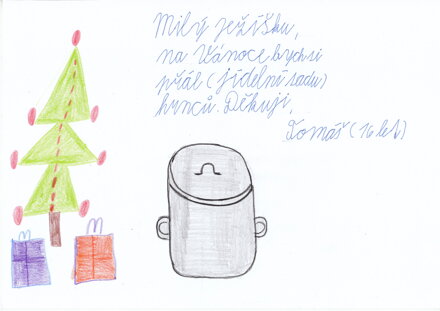 Milý ježíšku,
na Vánoce bych si
přál (jídelní sadu)
hrnců. Děkuji,
Tomáš (16 let)